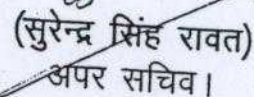 (सुरेन्द्र सिंह रावत)
अपर सचिव।